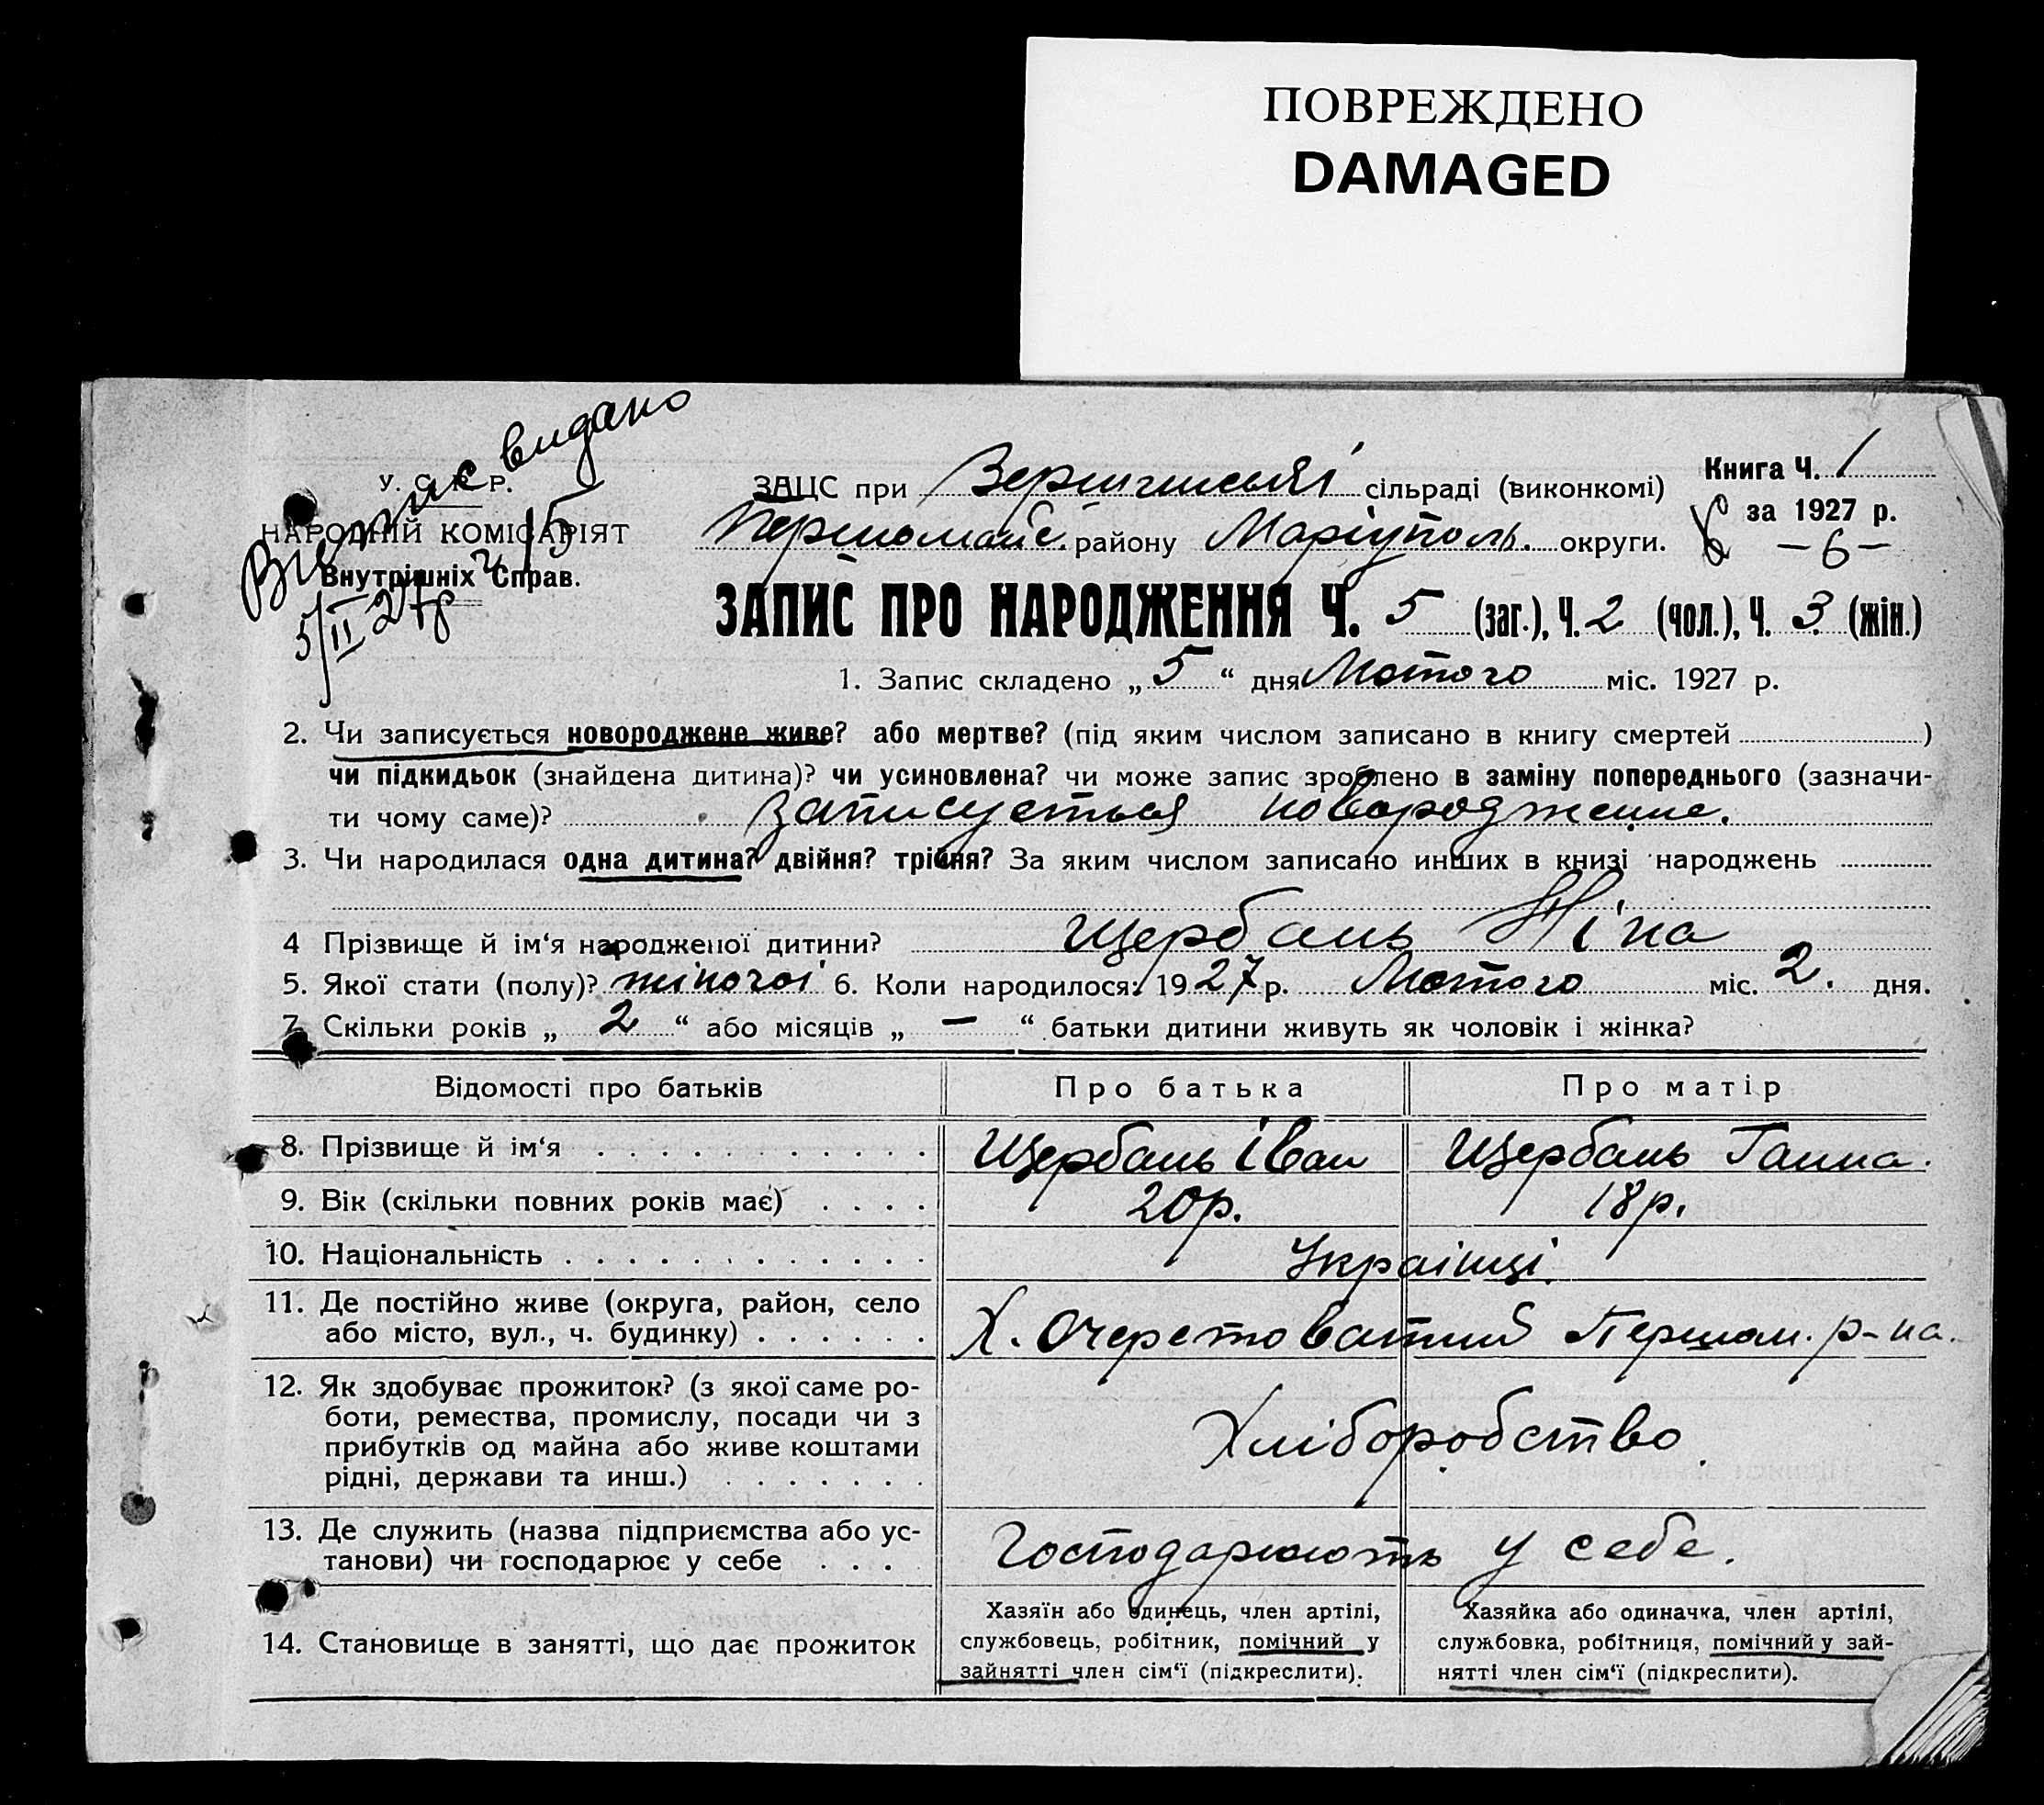 ПОВРЕЖДЕНО
DAMAGED
Витяг видано
ч 15
5/II 27р
У. С. Р. Р.
НАРОДНІЙ КОМІСАРІЯТ
Внутрішніх Справ.
ЗАЦС при сільраді (виконкомі)
Першомайс. району Маріуполь. округи.
Книга Ч. 1
за 1927 р.
– 6 –
ЗАПИС ПРО НАРОДЖЕННЯ Ч. 5 (заг.), Ч. 2 (чол.), Ч. 3 (жін.)
1. Запис складено „ 5 “ дня Лютого міс. 1927 р.
2. Чи записується новороджене живе? або мертве? (під яким числом записано в книгу смертей )
чи підкидьок (знайдена дитина)? чи усиновлена? чи може запис зроблено в заміну попереднього (зазначи-
ти чому саме)? записується новороджене.
3. Чи народилася одна дитина? двійня? трійня? За яким числом записано инших в книзі народжень
4 Прізвище й ім‘я народженої дитини? Щербань Ніна
5. Якої стати (полу)? жіночої 6. Коли народилося: 1927 р. Лютого міс. 2. дня.
7. Скільки років „ 2 “ або місяців „ — “ батьки дитини живуть як чоловік і жінка?
Відомості про батьків Про батька Про матір
8. Прізвище й ім‘я Щербань Іван Щербань Ганна.
9. Вік (скільки повних років має) 20р. 18р.
10. Національність Українці.
11. Де постійно живе (округа, район, село
або місто, вул., ч. будинку) Х. Очеретоватий Першом. р-на.
12. Як здобуває прожиток? (з якої саме ро-
боти, ремества, промислу, посади чи з
прибутків од майна або живе коштами
рідні, держави та инш.) Хліборобство.
13. Де служить (назва підприємства або ус-
танови) чи господарює у себе Господарюють у себе.
14. Становище в занятті, що дає прожиток
Хазяїн або одинець, член артілі,
службовець, робітник, помічний у
зайнятті член сім‘ї (підкреслити).
Хазяйка або одиначка, член артілі,
службовка, робітниця, помічний у зай-
нятті член сім‘ї (підкреслити).